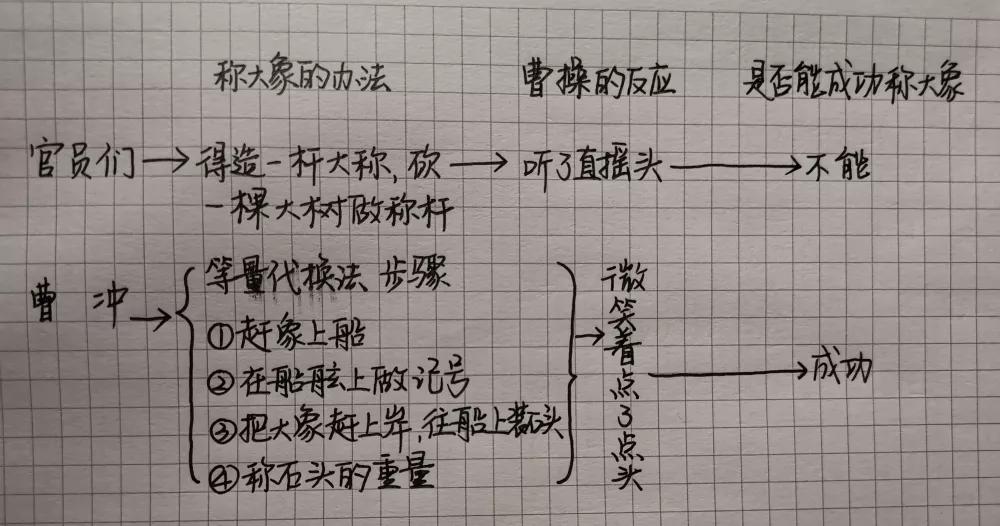 称大象的办法 曹操的反应 是否能成功称大象
官员们→得造一杆大称,砍→听了直摇头→不能
一棵大树做称杆
曹冲→
等量代换法 步骤
①赶象上船
②在船舷上做记号
③把大象赶上岸,往船上装石头
④称石头的重量
→微笑着点了点头→成功